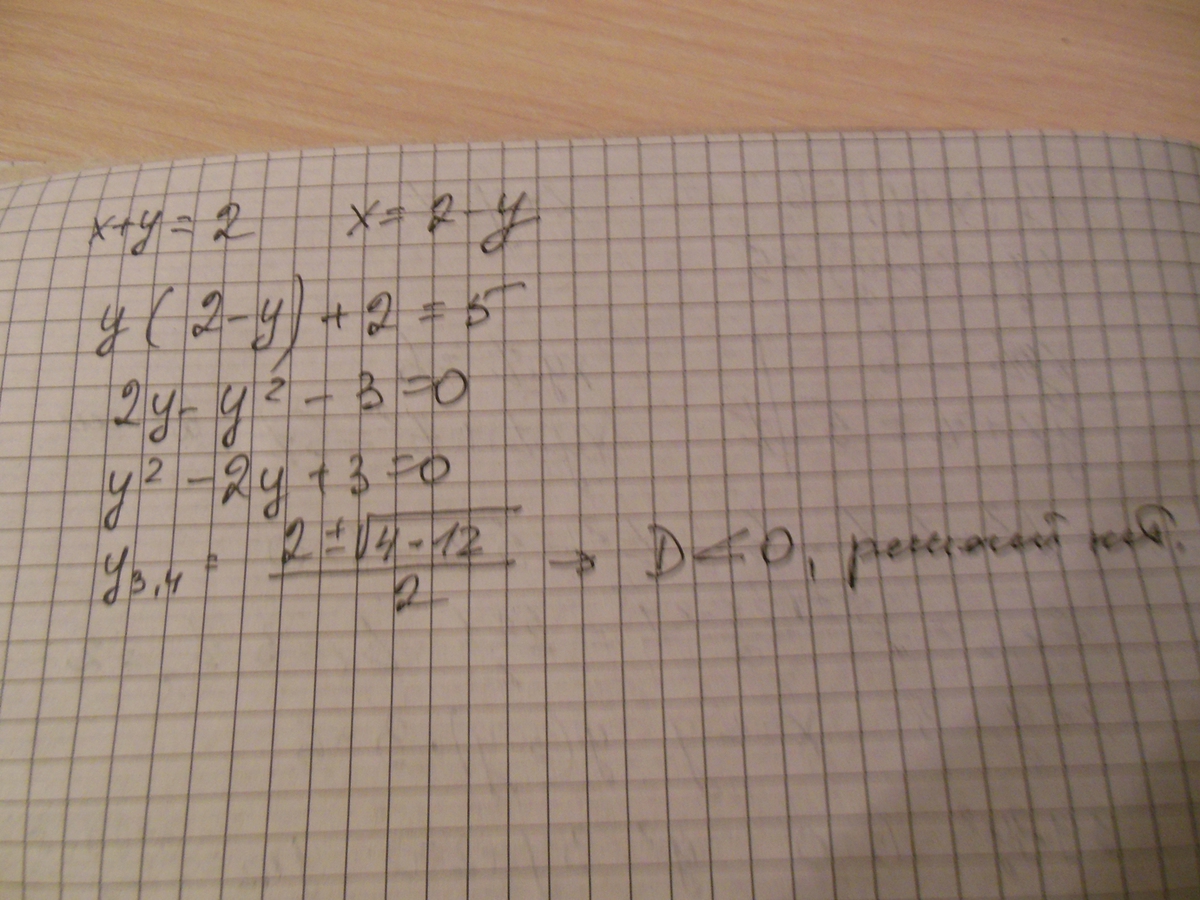 x+y=2 x=2-y
y(2-y)+2=5
2y-y²-3=0
y²-2y+3=0
y₃,₄ = (2±√(4-12))/2 → D<0, решений нет.